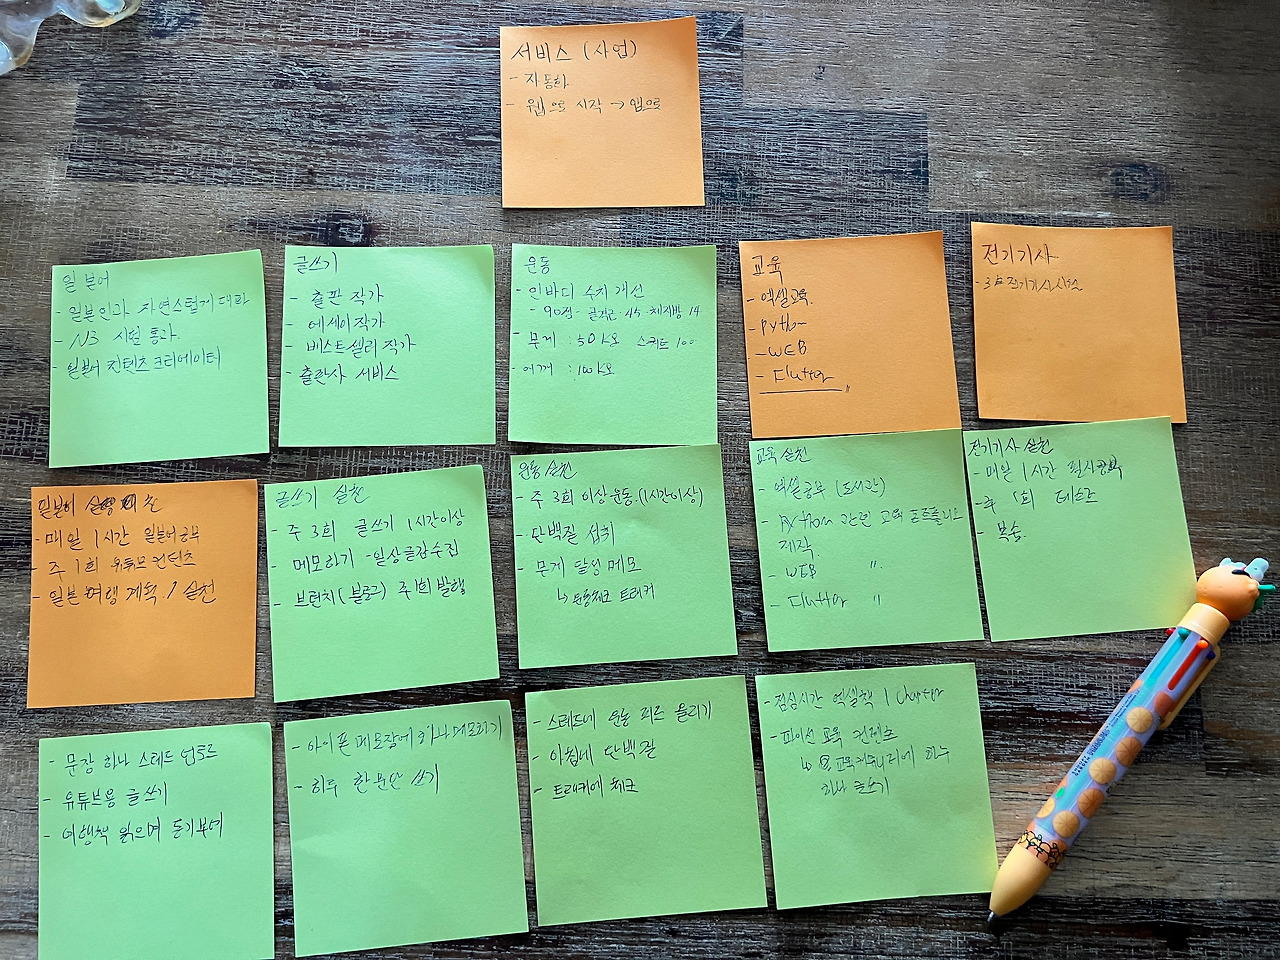 서비스 (사업)
- 자동화
- 웹으로 시작 → 앱으로
일본어
- 일본인과 자연스럽게 대화
- N3 시험 통과
- 일본어 컨텐츠 크리에이터
글쓰기
- 출판 작가
- 에세이 작가
- 베스트셀러 작가
- 출판사 서비스
운동
- 인바디 수치 개선
- 90점 - 골격근 45 체지방 14
- 무게 : 50kg 스쿼트 100
- 어깨 : 100kg
교육
- 엑셀교육
- python
- WEB
- Flutter "
전기기사
일본어 실천
- 매일 1시간 일본어공부
- 주 1회 유튜브 컨텐츠
- 일본여행 계획 / 실천
글쓰기 실천
- 주 3회 글쓰기 1시간이상
- 메모하기 - 일상글감수집
- 브런치(블로그) 주1회 발행
운동 실천
- 주 3회 이상 운동 (1시간이상)
- 단백질 섭취
- 무게 달성 메모
↳ 운동체크 트래커
교육 실천
- 엑셀공부 (도서관)
- Python 관련 교육 포트폴리오
제작.
- WEB "
- Flutter "
전기기사 실천
- 매일 1시간 필시공부
- 주 1회 테스트
- 복습
- 문장 하나 스레드 업로드
- 유튜브용 글쓰기
- 여행책 읽으며 동기부여
- 아이폰 메모장에 하나 메모하기
- 하루 한문단 쓰기
- 스레드에 운동 피드 올리기
- 아침에 단백질
- 트래커에 체크
- 점심시간 엑셀책 1 Chapter
- 파이썬 교육 컨텐츠
↳ 교육커뮤니티에 하루
하나 글쓰기